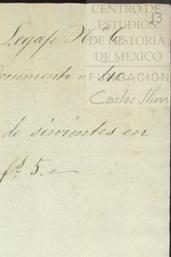 CENTRO DE
ESTUDIOS
DE HISTORIA
DE MEXICO
FUNDACIÓN
Carlos Slim
13
Legajo Nº 6
Documento nº
de sirvientes en
fs. 5.